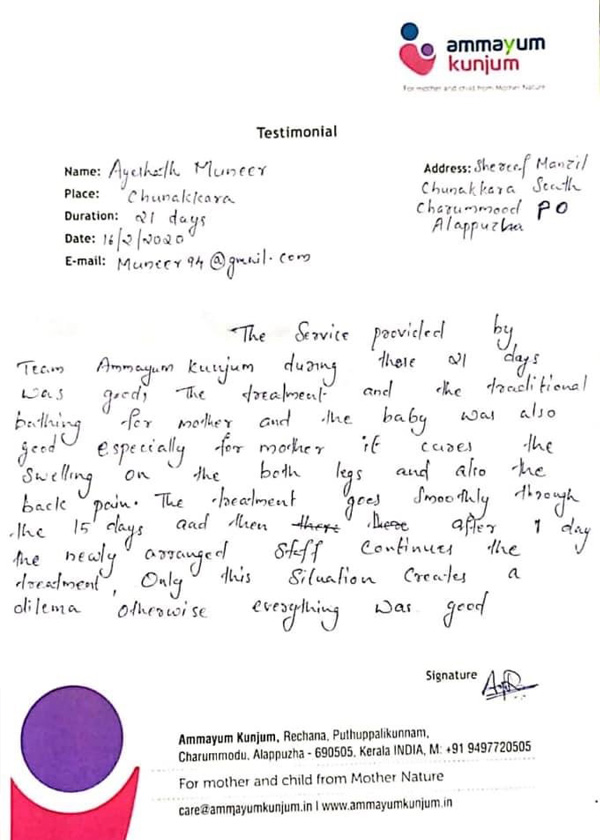 ammayum
kunjum
For mother and child from Mother Nature
Testimonial
Name: Ayshath Muneer
Place: Chunakkara
Duration: 21 days
Date: 16/2/2020
E-mail: Muneer94@gmail.com
Address: Shereef Manzil
Chunakkara South
Charummood PO
Alappuzha
The Service provided by
Team Ammayum kunjum during these 21 days
was good, The treatment and the traditional
bathing for mother and the baby was also
good especially for mother it cures the
swelling on the both legs and also the
back pain. The treatment goes smoothly through
the 15 days and then there there after 1 day
the newly arranged staff continues the
treatment, Only this situation creates a
dilema otherwise everything was good
Signature
Ammayum Kunjum, Rechana, Puthuppalikunnam,
Charummodu, Alappuzha - 690505, Kerala INDIA, M: +91 9497720505
For mother and child from Mother Nature
care@ammayumkunjum.in I www.ammayumkunjum.in